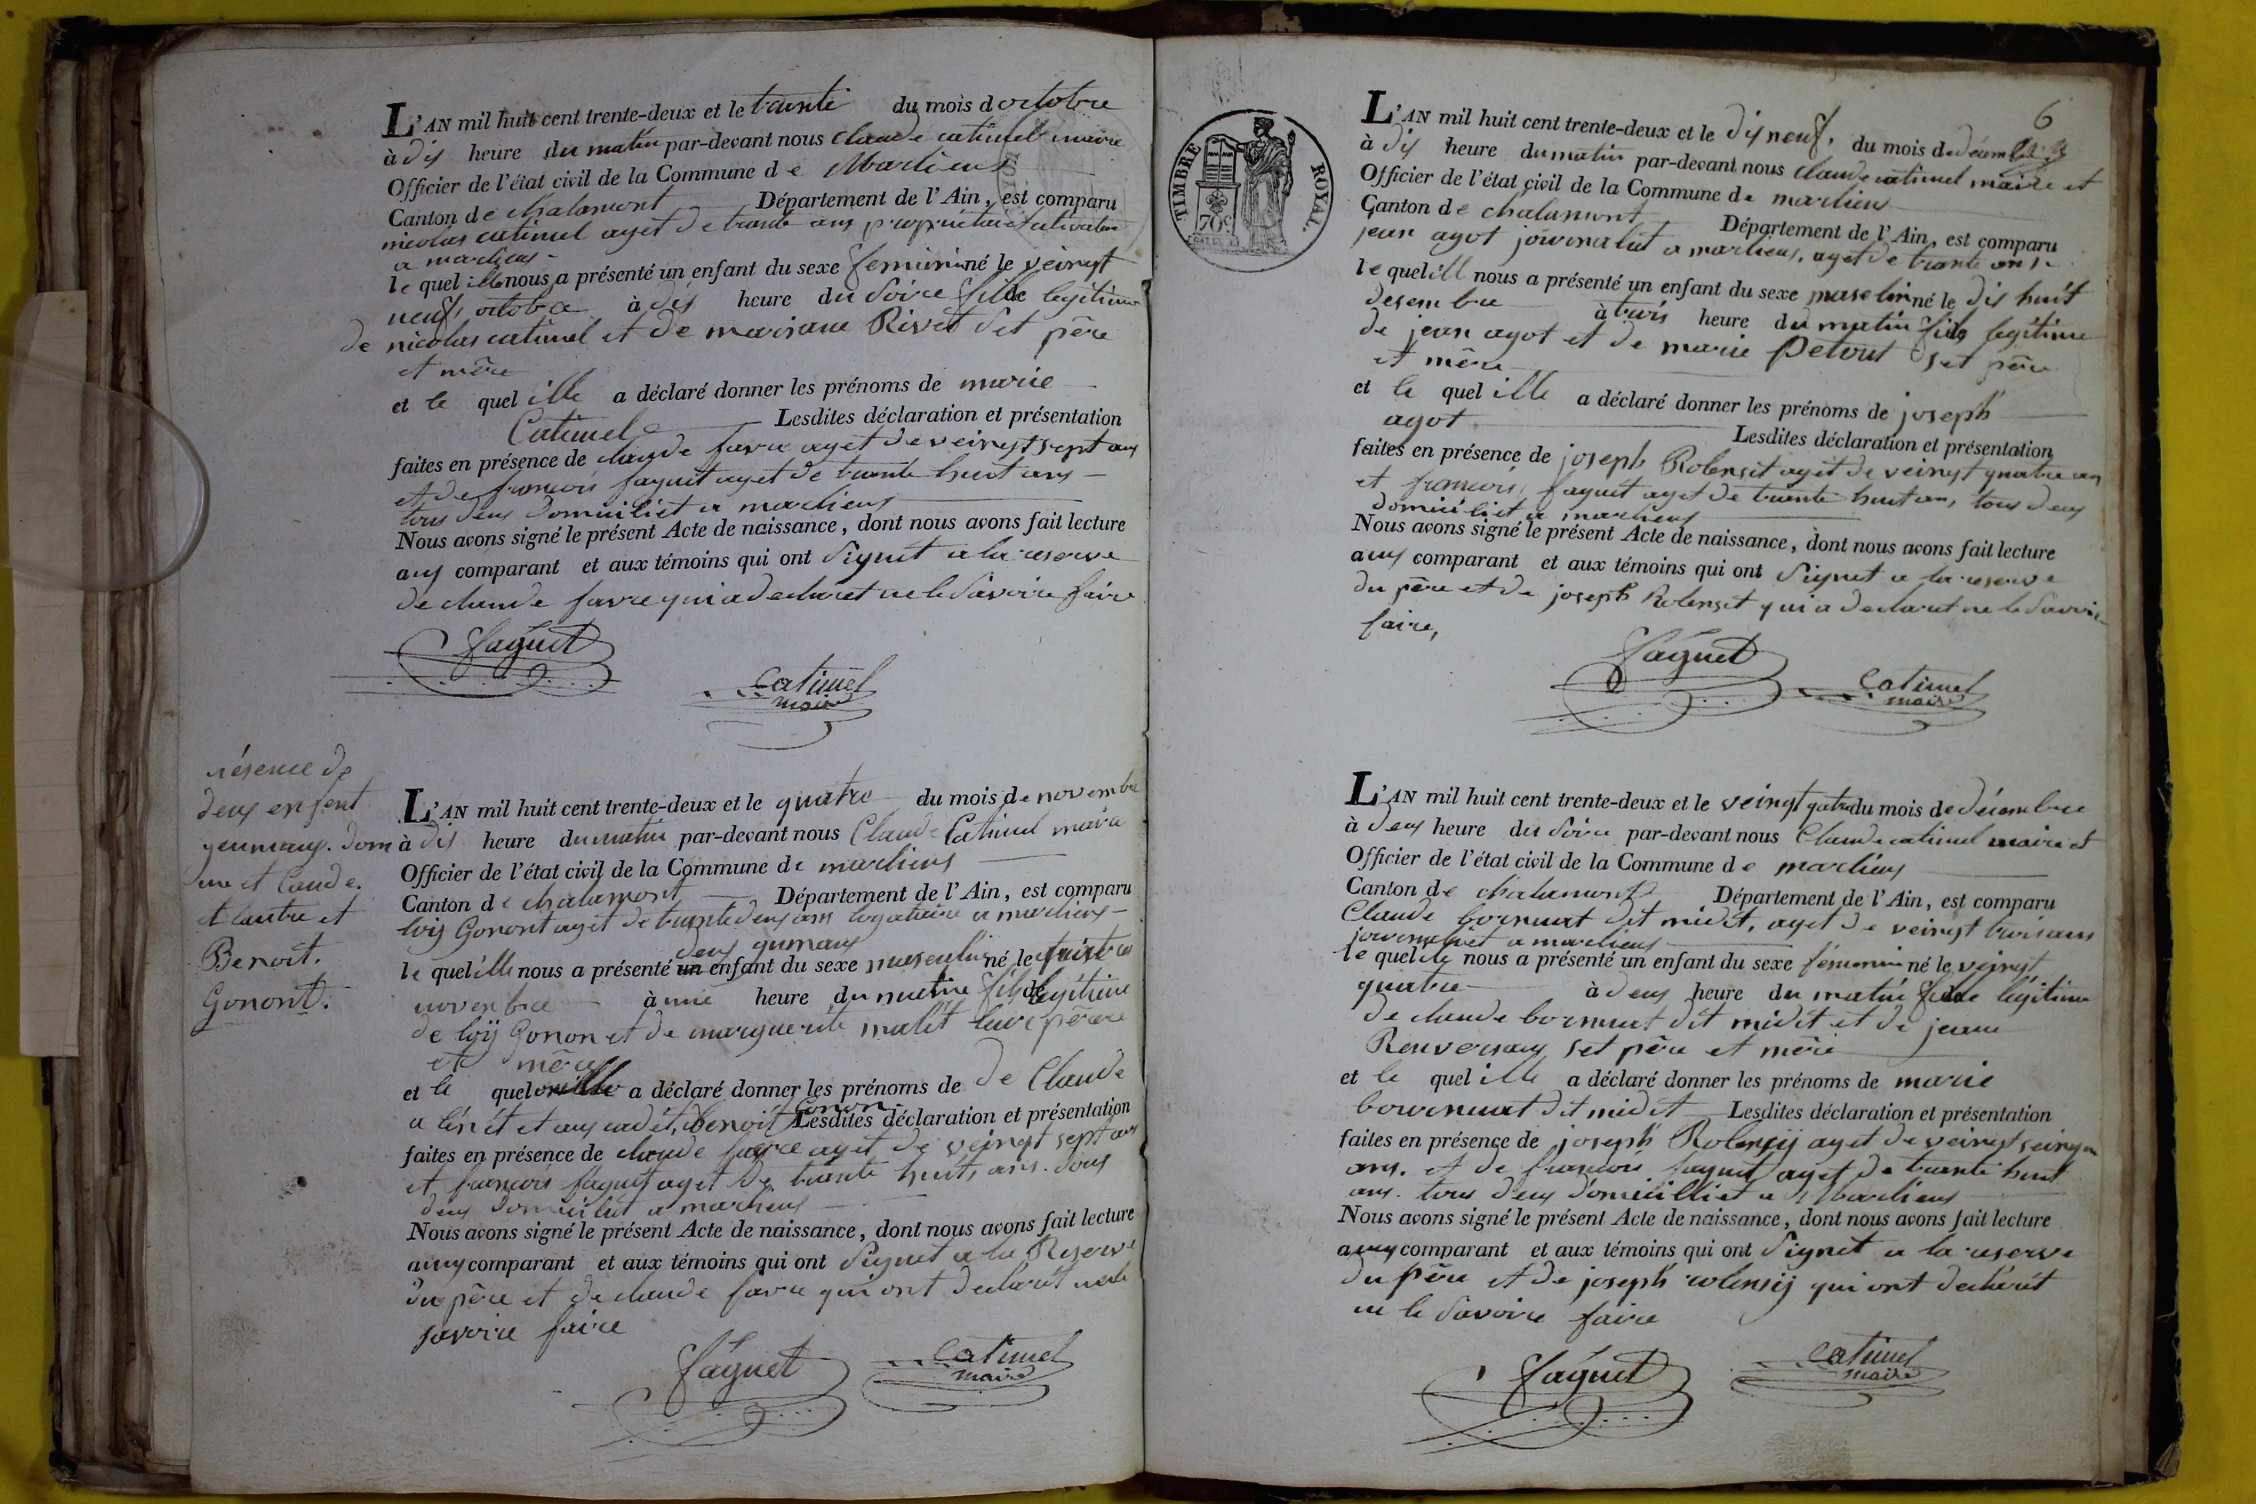 L'AN mil huit cent trente-deux et le trante du mois d octobre
à dis heure du matin par-devant nous claude catimel maire
Officier de l'état civil de la Commune d e Marlieux
Canton de chalamont Département de l'Ain, est comparu
nicolas catimel aget de trante ans propriétaire cultivateur
a marlieux
le quel ille nous a présenté un enfant du sexe feminin né le veingt
neuf, octobre à dis heure du soire fille legitime
de nicolas catimel et de mariane Rivet set père
et mère
et le quel ille a déclaré donner les prénoms de marie
Catimel Lesdites déclaration et présentation
faites en présence de claude favre aget de veingt sept ans
et de francois faguet aget de trante huit ans
tous deux domiciliet a marlieux
Nous avons signé le présent Acte de naissance, dont nous avons fait lecture
aux comparant et aux témoins qui ont signet a la reserve
de claude favre qui a declaret ne le savoire faire
faguet
catimel
maire
deux enfent
et lautre et
Benoit.
Gonont.
L'AN mil huit cent trente-deux et le quatre du mois de novembre
à dis heure du matin par-devant nous Claude Catimel maire
Officier de l'état civil de la Commune de marlieux
Canton de chalamont Département de l'Ain, est comparu
loij Gonont aget de trante deux ans logataire a marlieux
deux gumaux
le quel ille nous a présenté un enfant du sexe masculin né le
novenbre à une heure du matin fils legitime
de loij Gonon et de marguerite malet leur père
et mère
et le quel a déclaré donner les prénoms de de Claude
Gonon
a lénét et aux cadét, Benoit Lesdites déclaration et présentation
faites en présence de claude favre aget de veingt sept ans
et francois faguet aget de trante huit, ans. tous
deux domiciliet a marlieux
Nous avons signé le présent Acte de naissance, dont nous avons fait lecture
aux comparant et aux témoins qui ont signet a la Reserve
du père et de claude favre qui ont declarét ne le
savoire faire
faguet
catimel
maire
6
TIMBRE ROYAL
70c
L'AN mil huit cent trente-deux et le dis neuf, du mois de décembre
à dis heure du matin par-devant nous claude catimel maire et
Officier de l'état civil de la Commune de marlieux
Canton de chalamont Département de l'Ain, est comparu
jean agot journaliét a marlieux, aget de trante ans
le quel ill nous a présenté un enfant du sexe masclin né le dis huit
desembre à trois heure du matin fils legitime
de jean agot et de marie Petout set père
et mère
et le quel ille a déclaré donner les prénoms de joseph
agot Lesdites déclaration et présentation
faites en présence de joseph Rolenset aget de veingt quatre an
et francois, faguet aget de trante huit ans, tous deux
domiciliet a marlieux
Nous avons signé le présent Acte de naissance, dont nous avons fait lecture
aux comparant et aux témoins qui ont signet a la reserve
du père et de joseph Rolenset qui a declaret ne le savoire
faire,
faguet
catimel
maire
L'AN mil huit cent trente-deux et le veingt qatre du mois de décembre
à deux heure du soire par-devant nous Claude catimel maire et
Officier de l'état civil de la Commune de marlieux
Canton de chalamont Département de l'Ain, est comparu
Claude dit midét, aget de veingt trois ans
journaliét a marlieux
le quel ile nous a présenté un enfant du sexe féminin né le veingt
quatre à deux heure du matin fille légitime
de claude dit midét et de jeane
Renversaux set père et mère
et le quel ille a déclaré donner les prénoms de marie
dit midét Lesdites déclaration et présentation
faites en présence de joseph Rolensij aget de veingt
ans. et de francois faguet aget de trante huit
ans. tous deux domicilliet a Marlieux
Nous avons signé le présent Acte de naissance, dont nous avons fait lecture
aux comparant et aux témoins qui ont signet a la reserve
du père et de joseph rolensij qui ont declarét
ne le savoire faire
faguet
catimel
maire